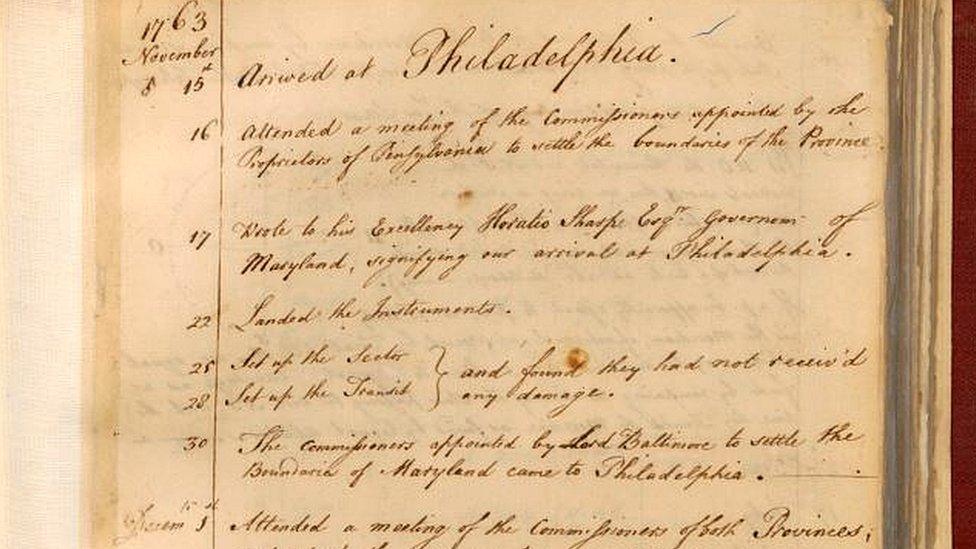 1763
November
8 15st Arrived at Philadelphia.
16 Attended a meeting of the Commissioners appointed by the
Proprietors of Pensylvania to settle the boundaries of the Province
17 Wrote to his Excellency Horatio Sharpe Esqr. Governor of
Maryland, signifying our arrival at Philadelphia.
22 Landed the Instruments.
25 Set up the Sector
28 Set up the Transit } and found they had not receiv'd
any damage.
30 The commissioners appointed by Lord Baltimore to settle the
Boundaries of Maryland came to Philadelphia.
1 Attended a meeting of the Commissioners of both Provinces;